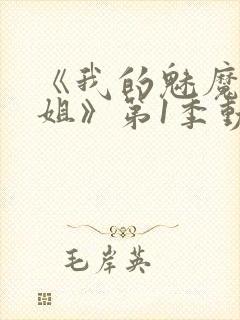 《我的魅魔
姐》第1季動
毛岸英